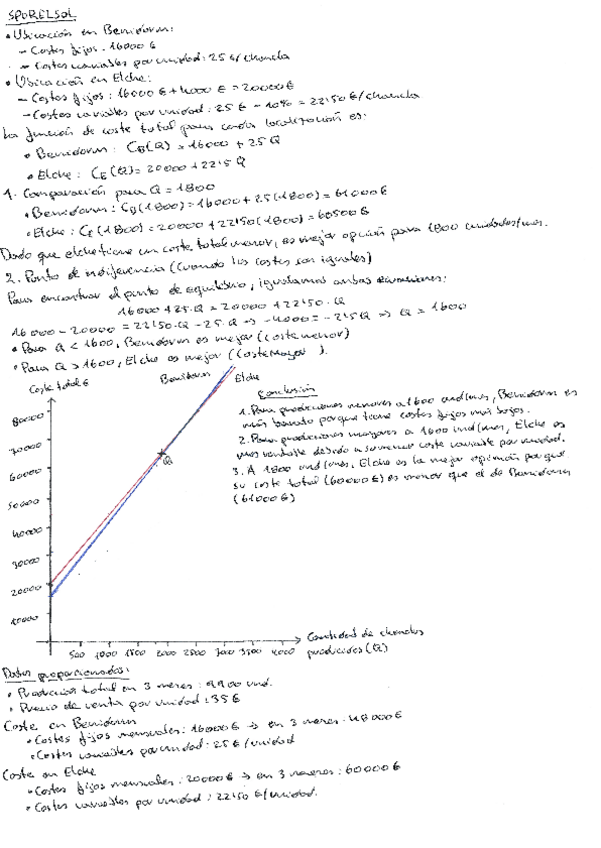 SPORELSOL
• Ubicación en Benidorm:
– Costes fijos: 16000 €
– Costes variables por unidad: 25 €/chancla
• Ubicación en Elche:
– Costes fijos: 16000 € + 4000 € = 20000 €
– Costes variables por unidad: 25 € - 10% = 22'50 €/chancla
La función de coste total para cada localización es:
• Benidorm: CB(Q) = 16000 + 25Q
• Elche: CE(Q) = 20000 + 22'5 Q
1. Comparación para Q = 1800
• Benidorm: CB(1800) = 16000 + 25(1800) = 61000 €
• Elche: CE(1800) = 20000 + 22'50(1800) = 60500 €
Dado que elche tiene un coste total menor, es mejor opción para 1800 unidades/mes.
2. Punto de indiferencia (Cuando los costes son iguales)
Para encontrar el punto de equilibrio, igualamos ambas ecuaciones:
16000 + 25·Q = 20000 + 22'50·Q
16000 - 20000 = 22'50·Q - 25·Q => -4000 = -2'5Q => Q = 1600
• Para Q < 1600, Benidorm es mejor (Coste menor)
• Para Q > 1600, Elche es mejor (Coste mayor ).
Coste total €
Benidorm
Elche
80000
70000
60000
50000
40000
30000
20000
10000
Q
500 1000 1500 2000 2500 3000 3500 4000
Cantidad de chanclas
producidas (Q)
Conclusión
1. Para producciones menores a 1600 und/mes, Benidorm es
más barato porque tiene costes fijos más bajos.
2. Para producciones mayores a 1600 und/mes, Elche es
mas rentable debido a su menor coste variable por unidad.
3. A 1800 und/mes, Elche es la mejor opción porque
su coste total (60000 €) es menor que el de Benidorm
(61000 €)
Datos proporcionados:
• Producción total en 3 meses: und.
• Precio de venta por unidad: 35 €
Coste en Benidorm
• Costes fijos mensuales: 16000 € => en 3 meses: 48000 €
• Costes variables por unidad: 25 €/unidad
Coste en Elche
• Costes fijos mensuales: 20000 € => en 3 meses: 60000 €
• Costes variables por unidad: 22'50 €/unidad.